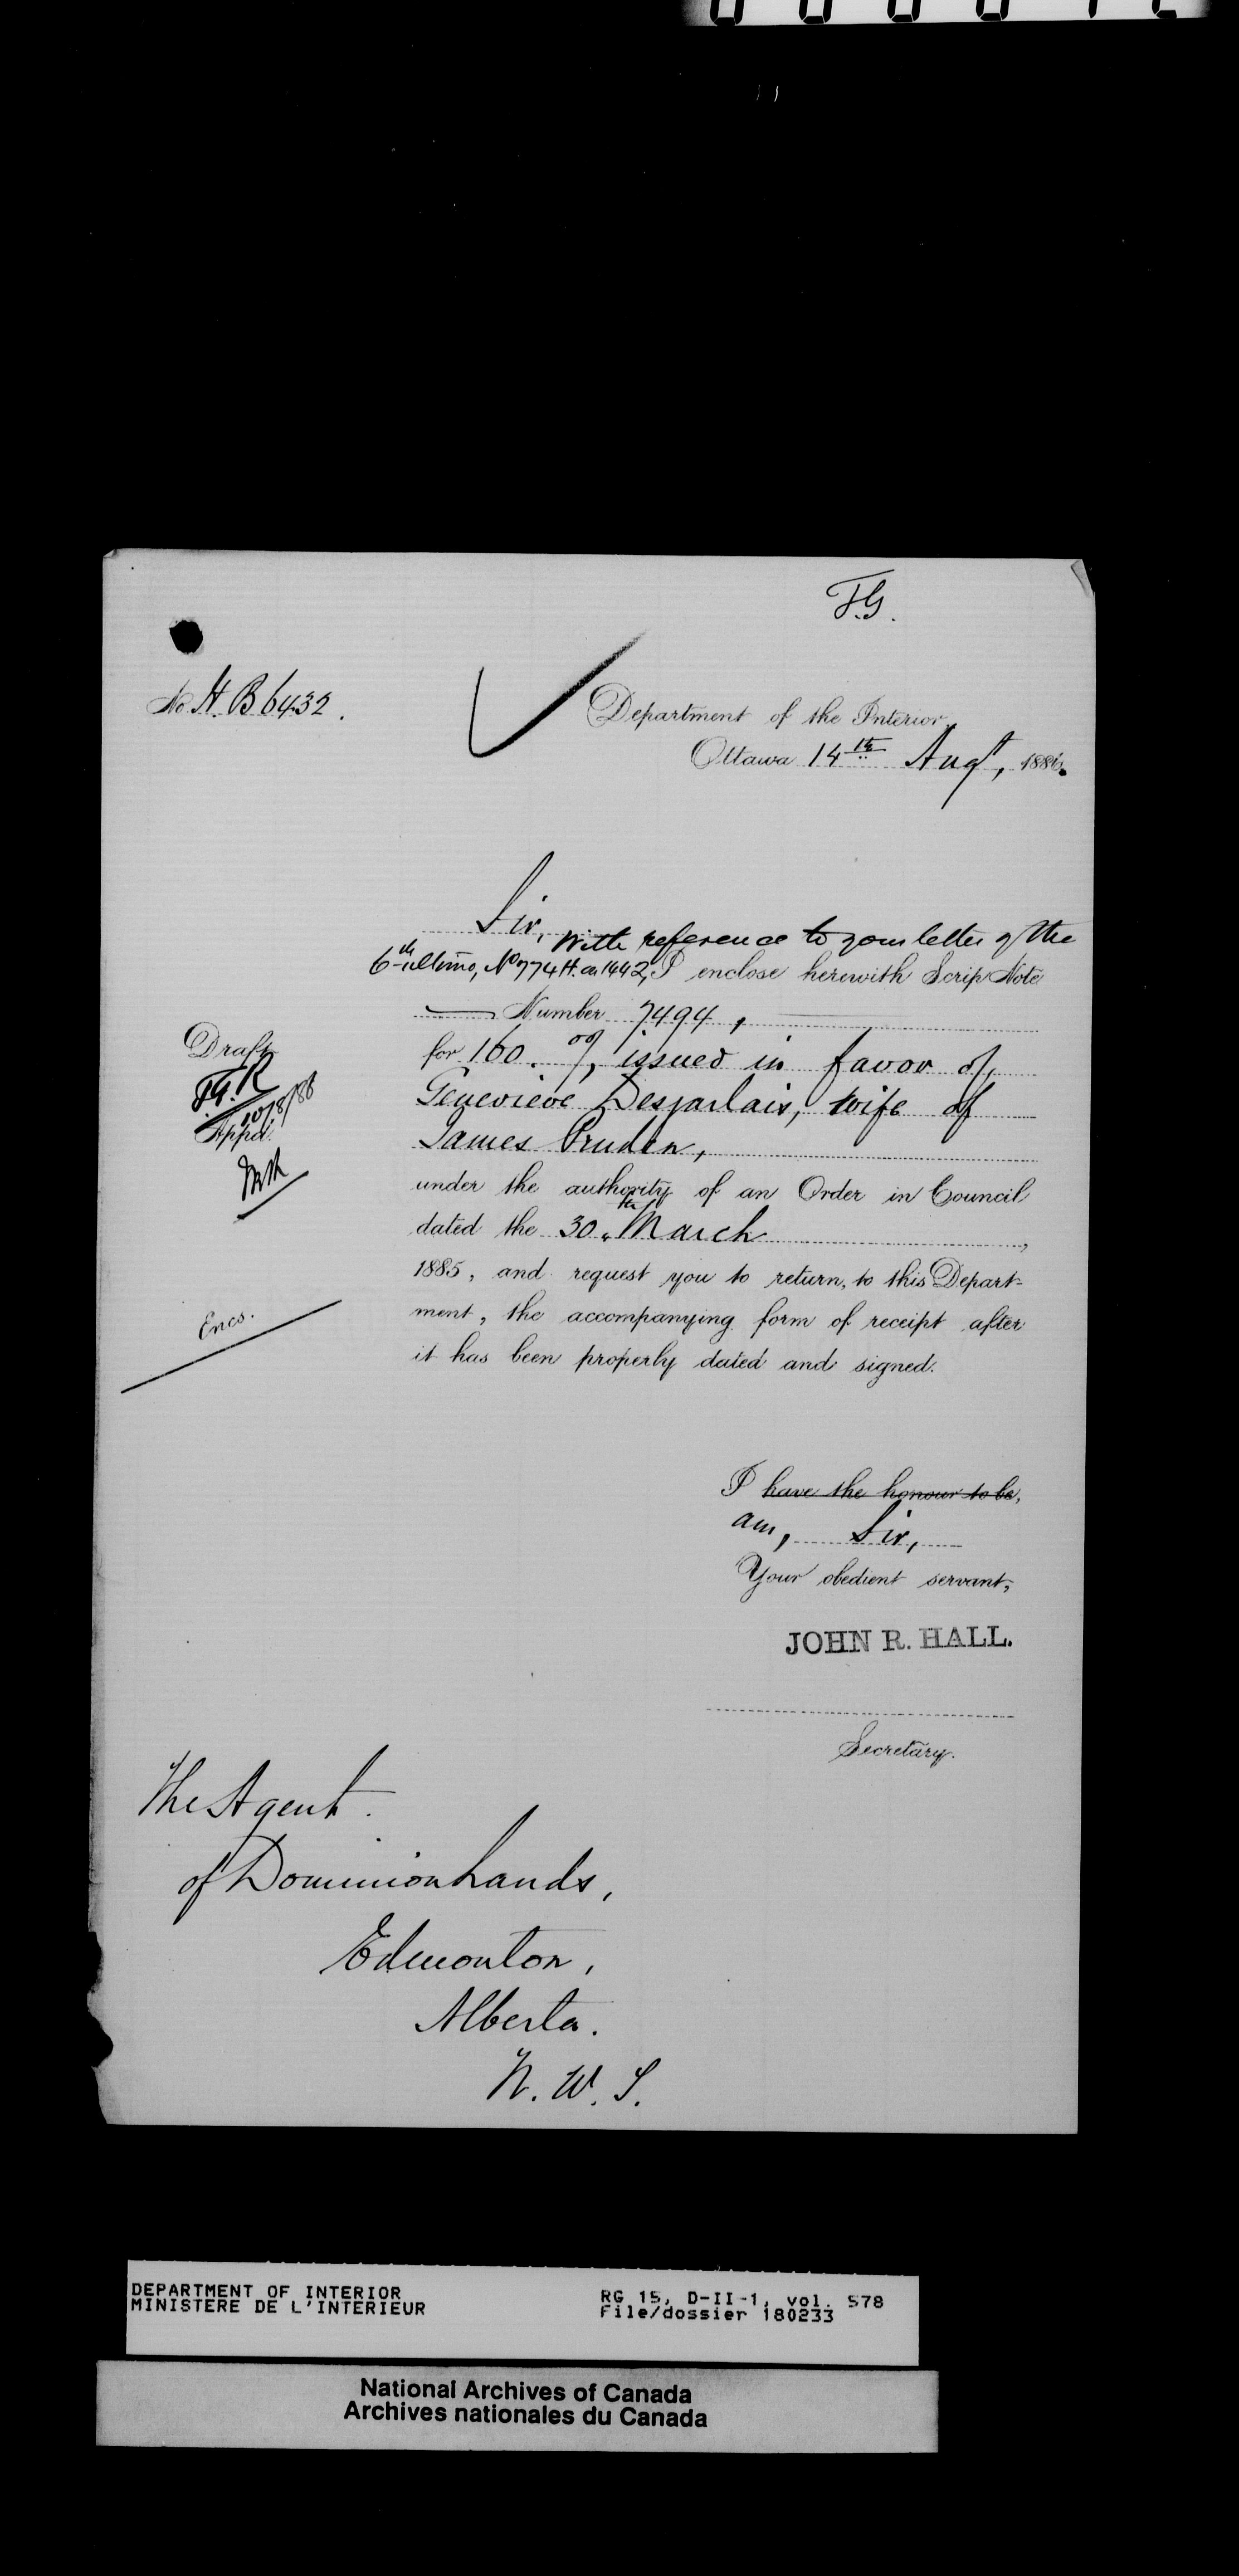 F.G.
No. H. B 6432.
Department of the Interior,
Ottawa 14th Augt, 188
Sir,
With reference to your letter of the
6th ultimo, No 774 H. on 1442, I enclose herewith Scrip Note
Number 7494,
for 160. 00/, issued in favor of
Genevieve Desjarlais, wife of
James Pruden,
under the authority of an Order in Council
dated the 30th March,
1885, and request you to return, to this Depart-
ment, the accompanying form of receipt after
it has been properly dated and signed.
Draft
F.G.R
10/8/88
Appd.
Encs.
I have the honour to be,
am, Sir,
Your obedient servant,
JOHN R. HALL.
Secretary.
The Agent
of Dominion Lands,
Edmonton,
Alberta.
N. W. T.
DEPARTMENT OF INTERIOR
MINISTERE DE L'INTERIEUR
RG 15, D-II-1, vol. 578
File/dossier 180233
National Archives of Canada
Archives nationales du Canada